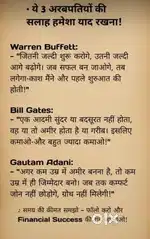 • ये 3 अरबपतियों की
सलाह हमेशा याद रखना!
Warren Buffett:
– "जितनी जल्दी शुरू करोगे, उतनी जल्दी
आगे बढ़ोगे। जब सफल बन जाओगे, तब
लगेगा-काश मैंने और पहले शुरुआत की
होती!"
Bill Gates:
– "एक आदमी सुंदर या बदसूरत नहीं होता,
वह या तो अमीर होता है या गरीब। इसलिए
कमाओ-और बहुत ज्यादा कमाओ!"
Gautam Adani:
– "अगर कम उम्र में अमीर बनना है, तो कम
उम्र में ही जिम्मेदार बनो। जब तक कम्फर्ट
जोन नहीं छोड़ोगे, ग्रोथ नहीं मिलेगी!"
समय की कीमत समझो – फॉलो करो और
Financial Success की